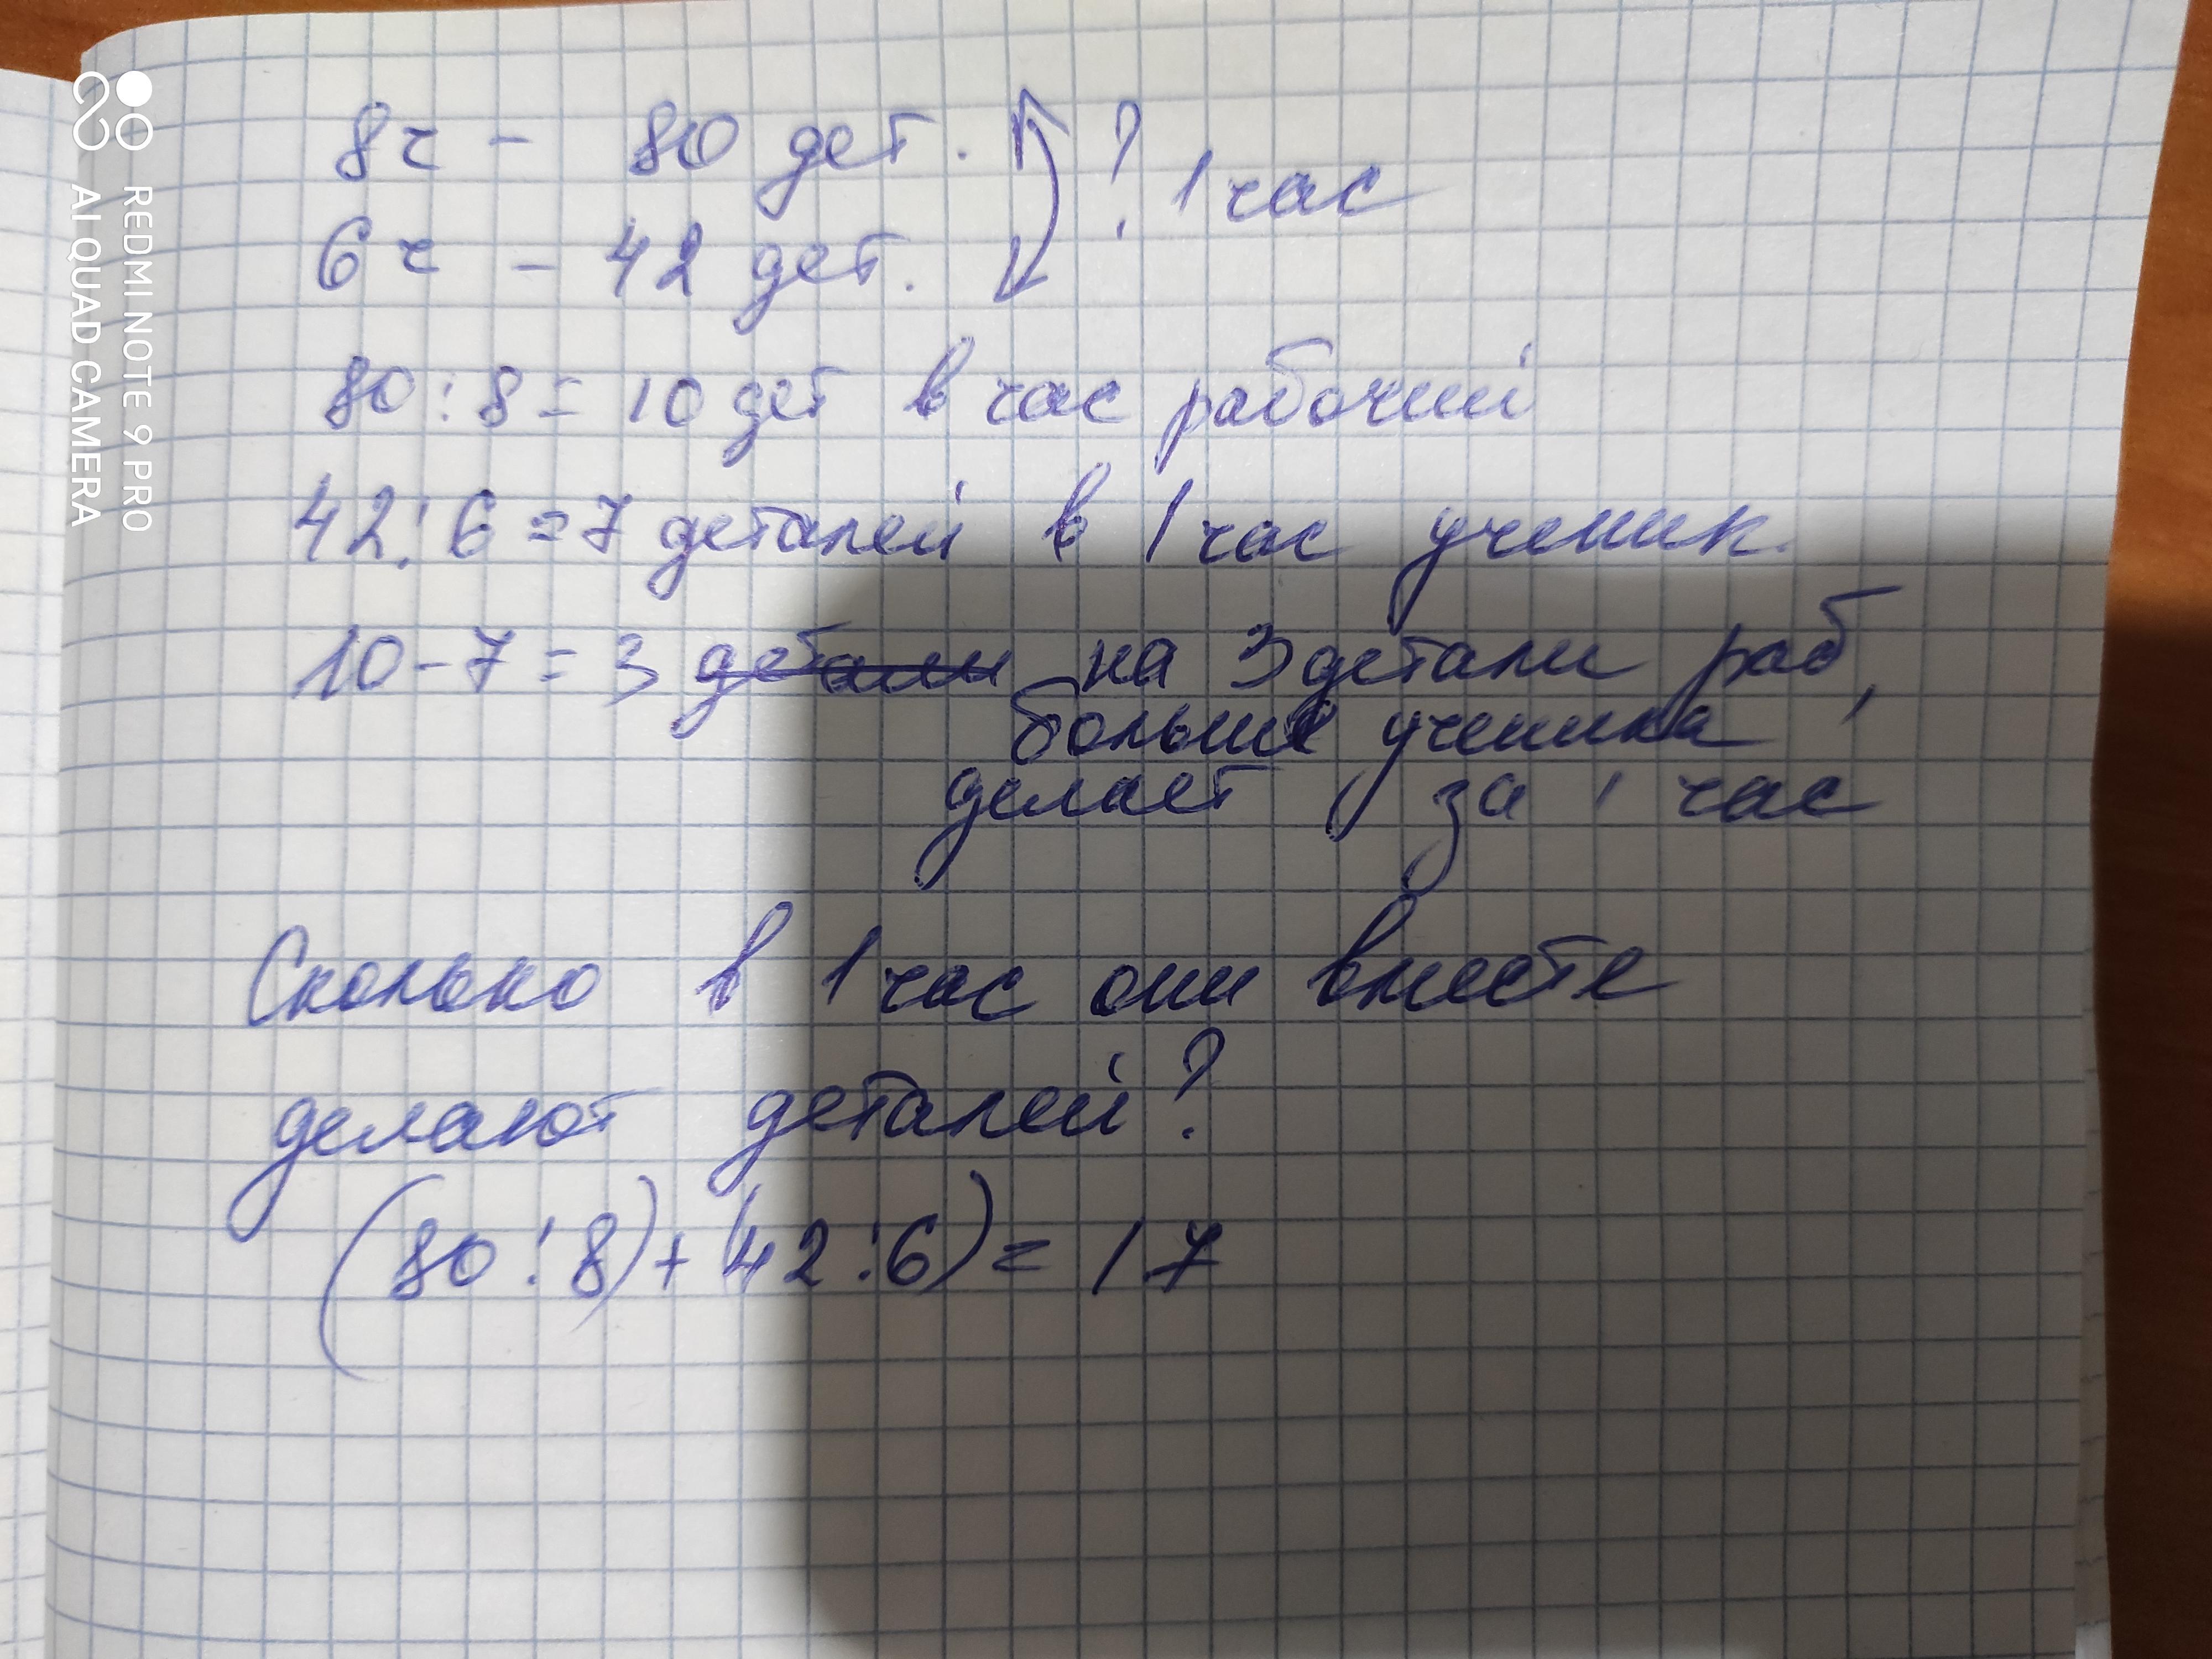 8ч - 80 дет. ? 1 час
6ч - 42 дет.
80 : 8 = 10 дет в час рабочий
42 : 6 = 7 деталей в 1 час ученик.
10 - 7 = 3 детали на 3 детали раб,
больше ученика
делает за 1 час
Сколько в 1 час они вместе
делают деталей?
(80 : 8) + (42 : 6) = 17
REDMI NOTE 9 PRO
AI QUAD CAMERA